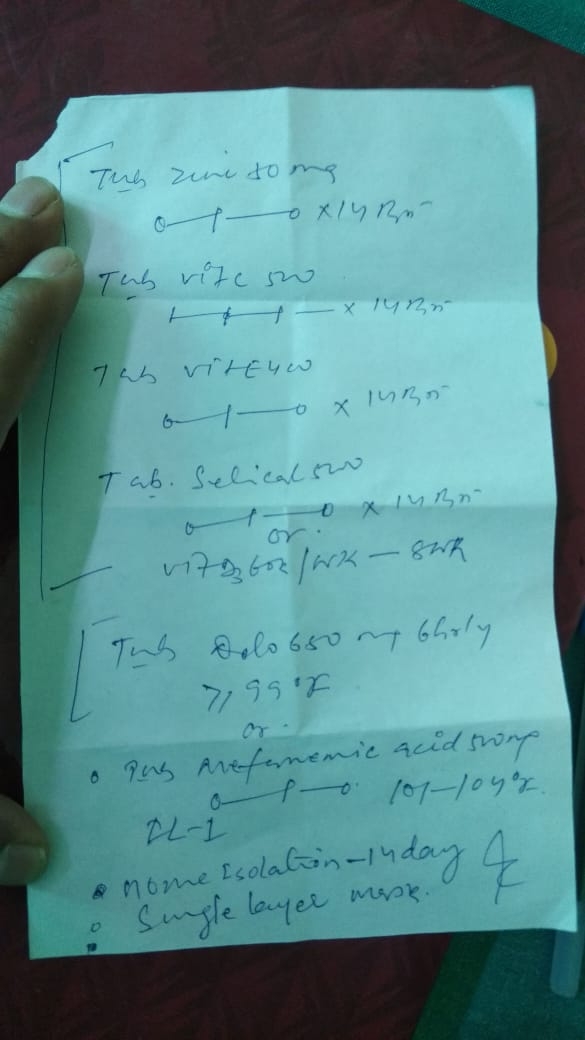 Tab Zinc 50 mg
0—1—0 x 14 Days
Tab vitc 500
1—1—1 — x 14 Days
Tab vit E 400
0—1—0 x 14 Days
Tab. Selical 500
0—1—0 x 14 Days
or.
vit D3 60k/wk — 8wk
Tab Dolo 650 mg 6hrly
≥ 99°F
or.
Tab Mefenemic acid 500mg
0—1—0. 101-104°F.
IL-1
Home Isolation - 14 day
Single layer mask.